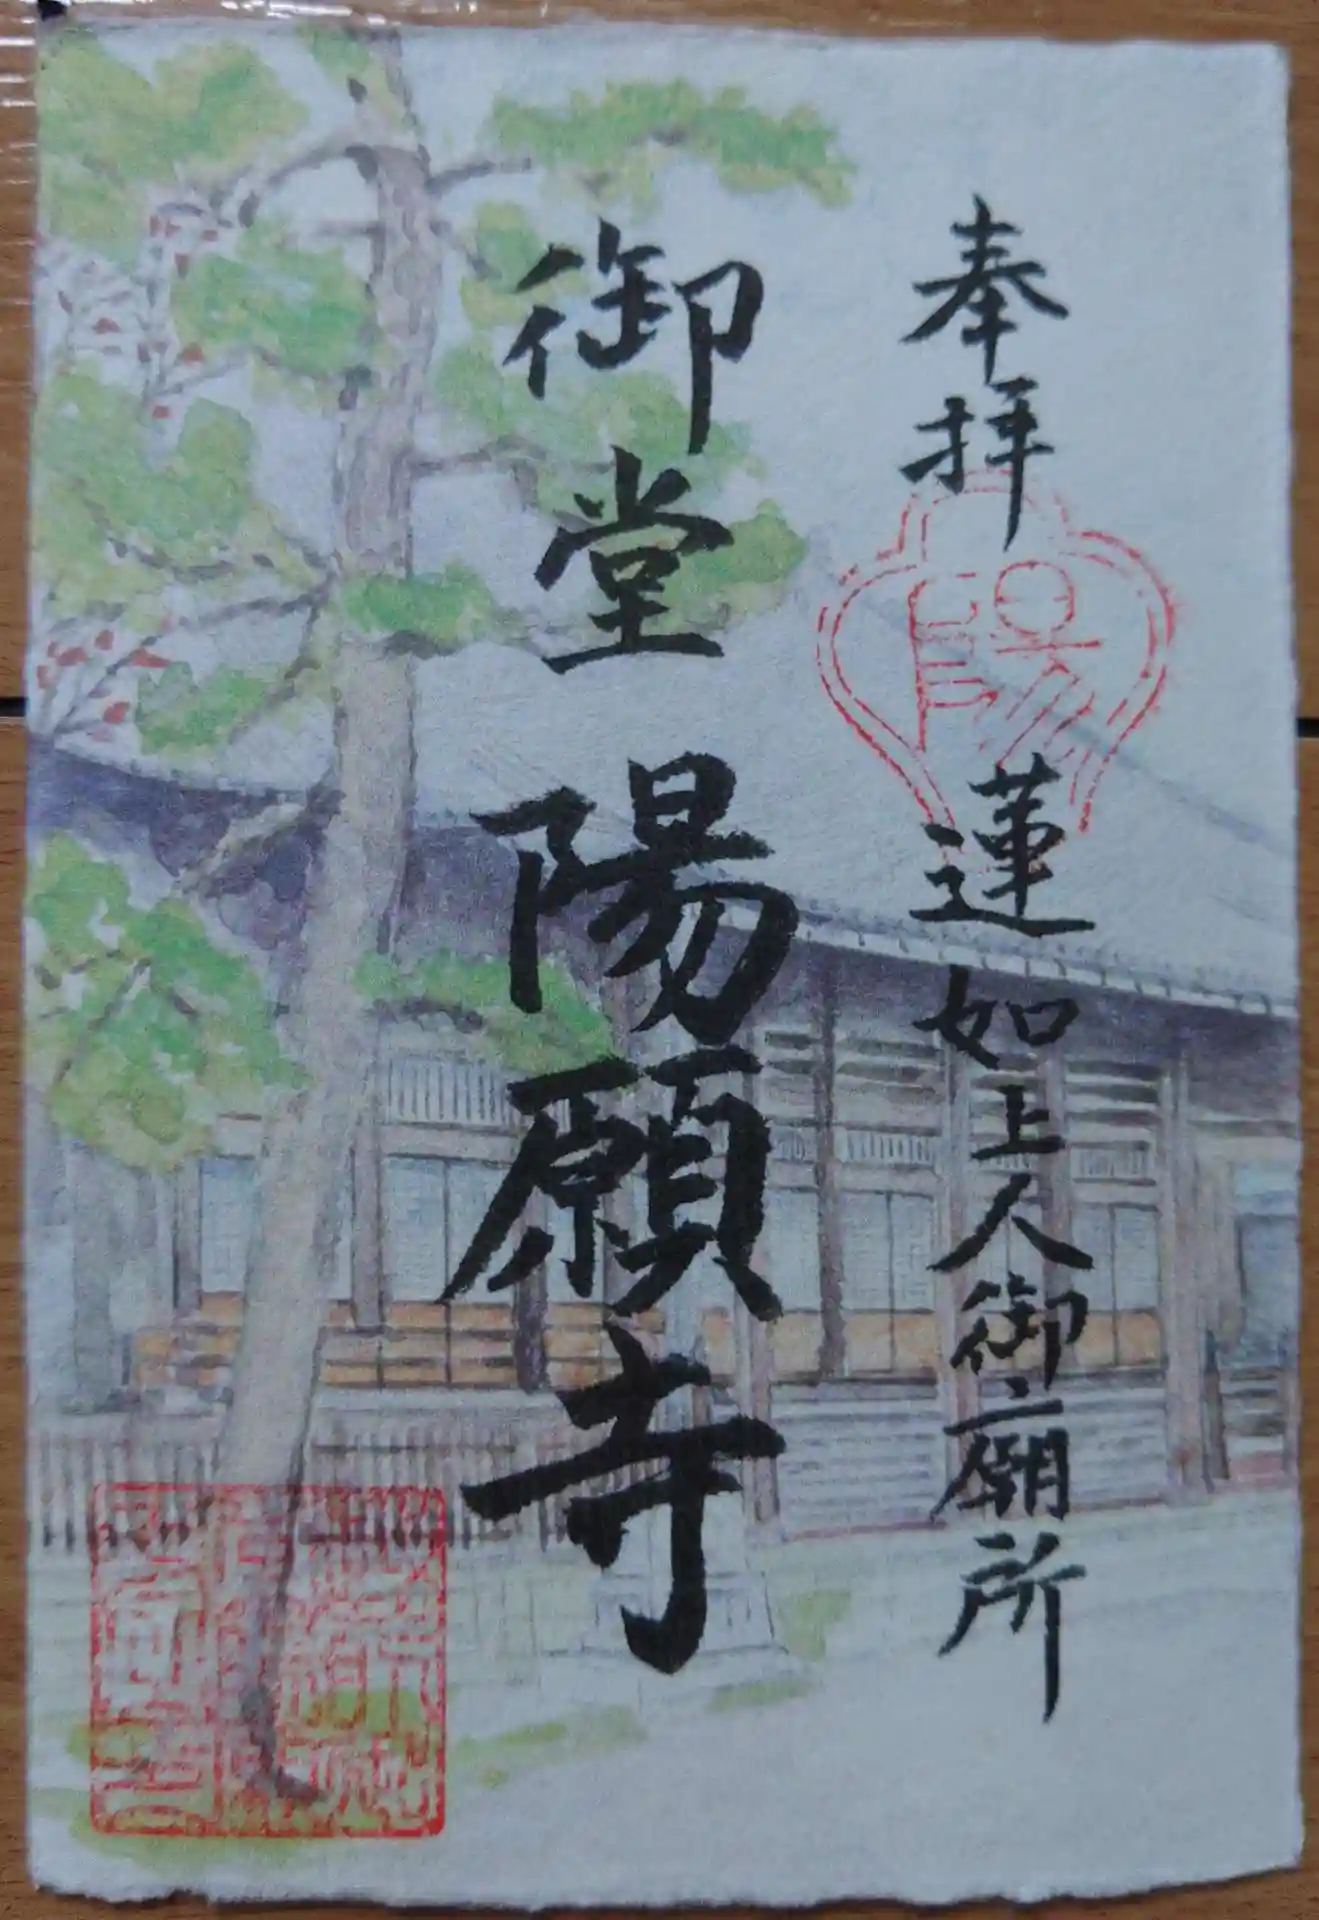 奉拝
蓮如上人御廟所
御堂
陽願寺
陽